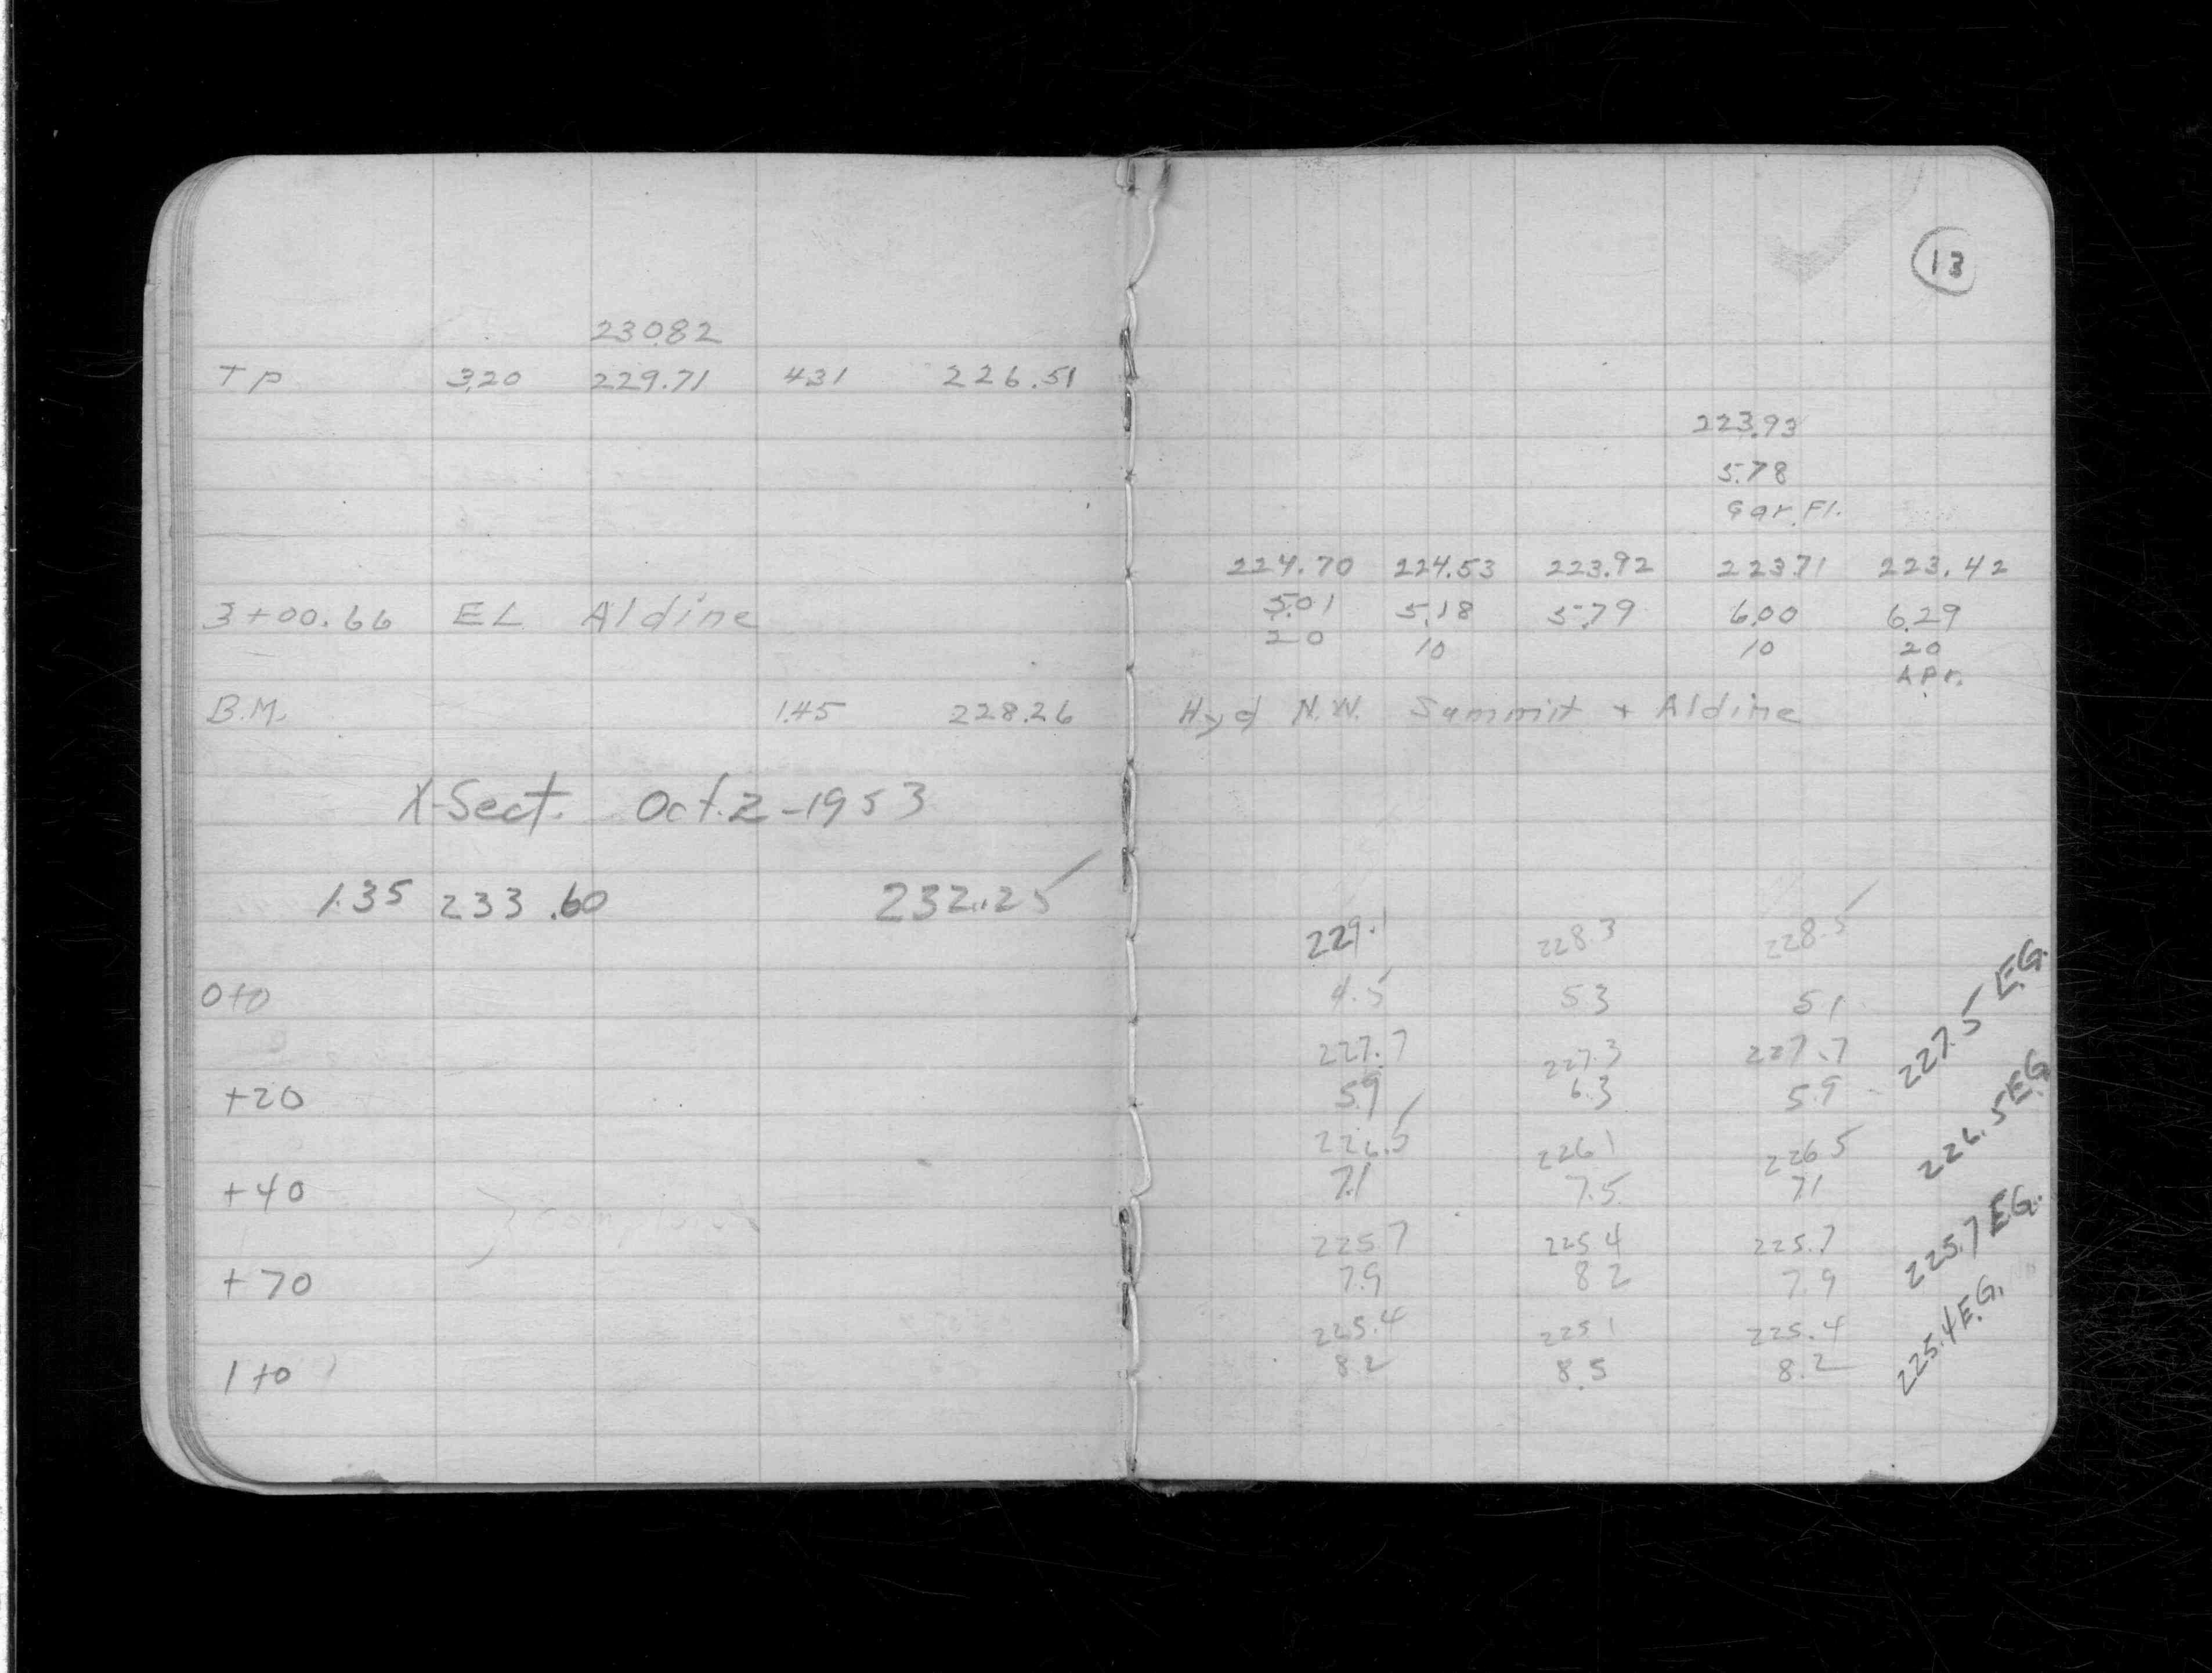 230.82
TP 3.20 229.71 4.31 226.51
3+00.66 EL Aldine
B.M. 1.45 228.26
X-Sect. Oct. 2-1953
1.35 233.60 232.25
0+0
+20
+40
+70
1+0
13
223.93
5.78
Gar. Fl.
224.70 224.53 223.92 223.71 223.42
5.01 5.18 5.79 6.00 6.29
20 10 10 20
Apr.
Hyd N.W. Summit + Aldine
229.1 228.3 228.5
4.5 5.3 5.1
227.7 227.3 227.7 227.5 E.G.
5.9 6.3 5.9
226.5 226.1 226.5 226.5 E.G.
7.1 7.5 7.1
225.7 225.4 225.7 225.7 E.G.
7.9 8.2 7.9
225.4 225.1 225.4 225.4 E.G.
8.2 8.5 8.2